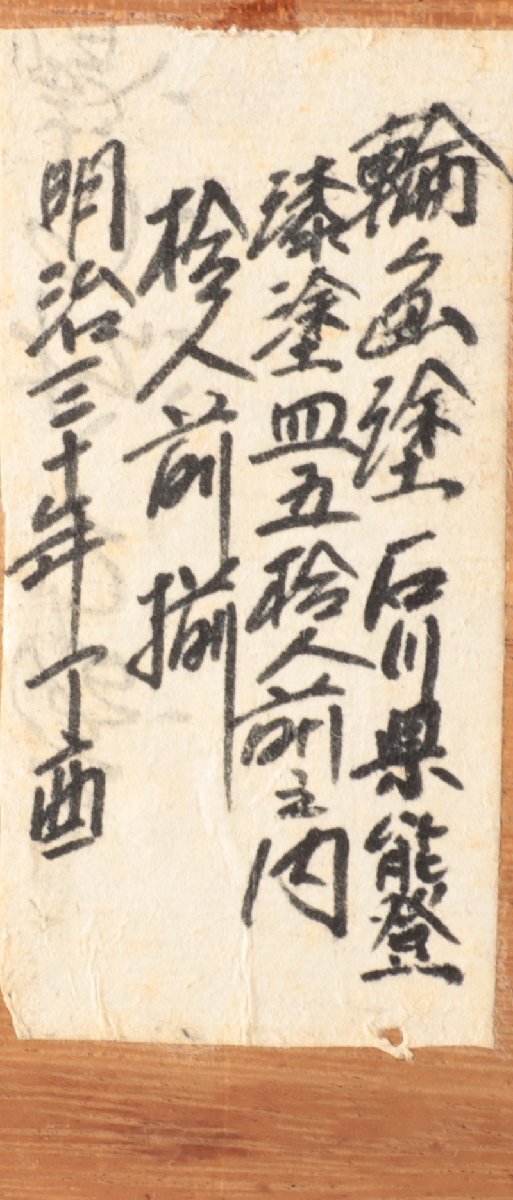 輪島塗 石川県能登
漆塗皿五拾人前之内
拾人前揃
明治三十年丁酉